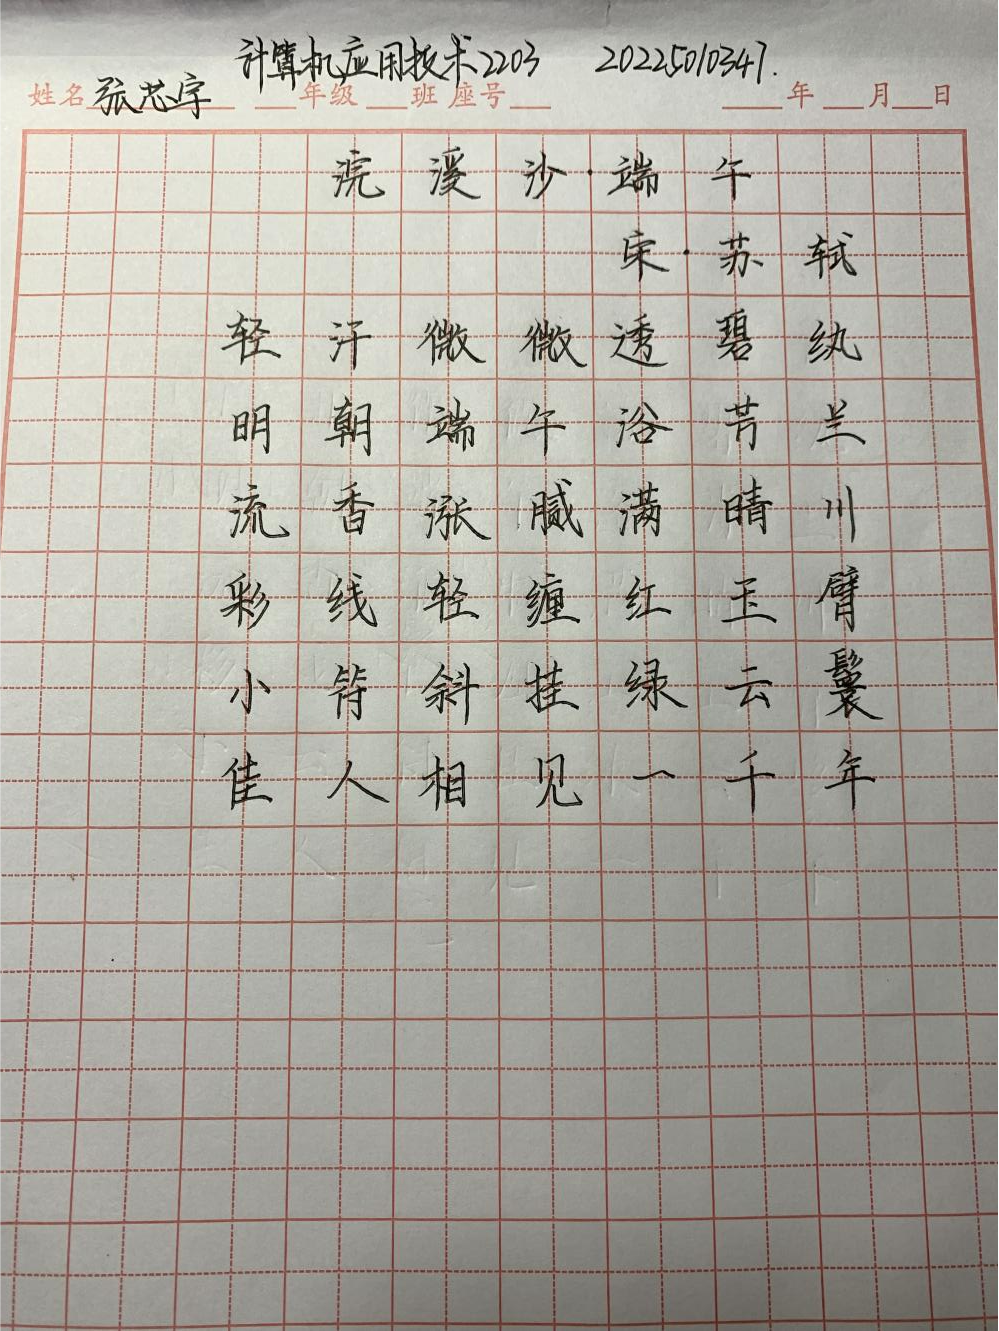 计算机应用技术2203 20225010347.
姓名 张芯宇 年级 班 座号 年 月 日
浣溪沙·端午
宋·苏轼
轻汗微微透碧纨
明朝端午浴芳兰
流香涨腻满晴川
彩线轻缠红玉臂
小符斜挂绿云鬟
佳人相见一千年